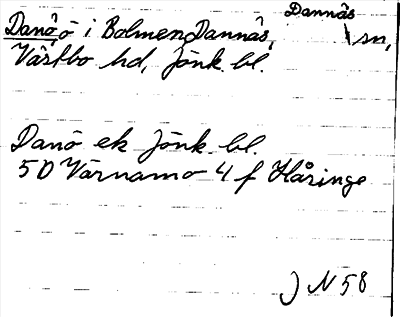 Dannäs
Danö ö i Bolmen, Dannäs sn,
Västbo hd, Jönk. bl.
Danö ek Jönk. bl.
5D Värnamo 4 f Håringe
J N 58